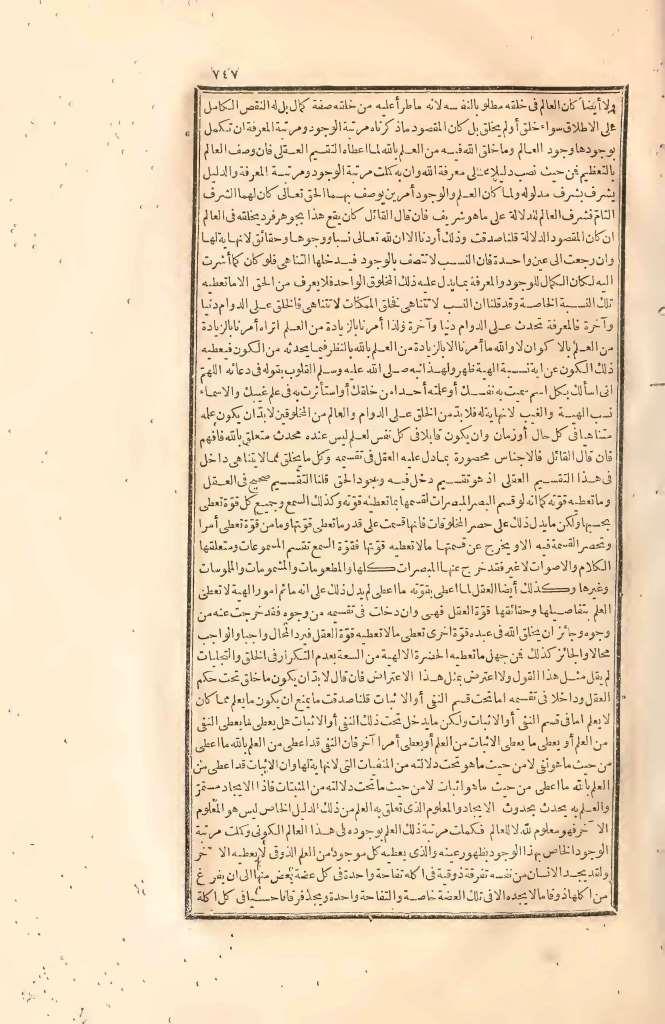 ٧٤٧
ولا أيضا كان العالم فى خلقه مطلوبا لنفسه لانه ما طرأ عليه من خلقه صفة كمال بل له النقص الكامل
على الاطلاق سواء خلق أو لم يخلق بل كان المقصود ما ذكرناه مرتبة الوجود ومرتبة المعرفة ان تكمل
بوجودها وجود العالم وما خلق الله فيه من العلم بالله لما اعطاه التقسيم العقلى فان وصف العالم
بالتعظيم فمن حيث نصب دليلا على معرفة الله وان به كملت مرتبة الوجود ومرتبة المعرفة والدليل
يشرف بشرف مدلوله ولما كان العلم والوجود أمرين يوصف بهما الحق تعالى كان لهما الشرف
التام فشرف العالم لدلالة على ما هو شريف فان قال القائل كان يقع هذا بجوهر فرد يخلقه فى العالم
ان كان المقصود الدلالة قلنا صدقت وذلك أردنا الا ان لله تعالى نسبا ووجوها وحقائق لا نهاية لها
وان رجعت الى عين واحدة فان النسب لا تتصف بالوجود فيدخلها التناهى فلو كان كما أشرت
اليه لكان الكمال للوجود والمعرفة بما يدل عليه ذلك المخلوق الواحد فلا يعرف من الحق الا ما تعطيه
تلك النسبة الخاصة وقد قلنا ان النسب لا تتناهى فخلق الممكنات لا تتناهى فالخلق على الدوام دنيا
وآخرة فالمعرفة تحدث على الدوام دنيا وآخرة ولذا أمرنا بالزيادة من العلم اتراه أمرنا بالزيادة
من العلم بالاكوان لا والله ما أمرنا الا بالزيادة من العلم بالله بالنظر فيما يحدثه من الكون فيعطيه
ذلك الكون عن اية نسبة الهية ظهر ولهذا نبه صلى الله عليه وسلم القلوب بقوله فى دعائه اللهم
انى اسألك بكل اسم سميت به نفسك أو علمته أحدا من خلقك أو استأثرت به فى علم غيبك والاسماء
نسب الهية والغيب لا نهاية له فلا بد من الخلق على الدوام والعالم من المخلوقين لا بد ان يكون علمه
متناهيا فى كل حال أو زمان وان يكون قابلا فى كل نفس لعلم ليس عنده محدث متعلق بالله فافهم
فان قال القائل فالاجناس محصورة بما دل عليه العقل فى تقسيمه وكل ما يخلق مما لا يتناهى داخل
فى هذا التقسيم العقلى اذ هو تقسيم دخل فيه وجود الحق قلنا التقسيم صحيح فى العقل
وما تعطيه قوته كما انه لو قسم البصر المبصرات لقسمها بما تعطيه قوته وكذلك السمع وجميع كل قوة تعطى
بحسبها ولكن ما يدل ذلك على حصر المخلوقات فانها قسمت على قدر ما تعطى قوتها وما من قوة تعطى أمرا
وتحصر القسمة فيه الا ويخرج عن قسمتها ما لا تعطيه قوتها فقوة السمع تقسم المسموعات ومتعلقها
الكلام والاصوات لا غير فقد خرج عنها المبصرات كلها والمطعومات والمشمومات والملموسات
وغيرها وكذلك أيضا العقل لما اعطى بقوته ما اعطى لم يدل ذلك على انه ما ثم امور الهية لا تعطى
العلم بتفاصيلها وحقائقها قوة العقل فهى وان دخلت فى تقسيمه من وجوه فقد خرجت عنه من
وجوه وجائز ان يخلق الله فى عبده قوة اخرى تعطى ما لا تعطيه قوة العقل فيرد المحال واجبا والواجب
محالا والجائز كذلك فمن جهل ما تعطيه الحضرة الالهية من السعة بعدم التكرار فى الخلق والتجليات
لم يقل مثل هذا القول ولا اعترض بمثل هذا الاعتراض فان قال لا بد ان يكون ما خلق تحت حكم
العقل وداخلا فى تقسيمه اما تحت قسم النفى أو الاثبات قلنا صدقت ما يمنع ان يكون ما يعلم مما كان
لا يعلم اما فى قسم النفى أو الاثبات ولكن ما يدخل تحت ذلك النفى أو الاثبات هل يعطى ما يعطى النفى
من العلم أو يعطى ما يعطى الاثبات من العلم أو يعطى أمرا آخر فان النفى قد اعطى من العلم بالله ما اعطى
من حيث ما هو نفى لا من حيث ما هو تحت دلالته من المنفيات التى لا نهاية لها وان الاثبات قد اعطى من
العلم بالله ما اعطى من حيث ما هو اثبات لا من حيث ما تحت دلالته من المثبتات فاذا الايجاد مستمر
والعلم به يحدث بحدوث الايجاد والمعلوم الذى تعلق به العلم من ذلك الدليل الخاص ليس هو المعلوم
الآخر فهو معلوم لله لا للعالم فكملت مرتبة ذلك العلم بوجوده فى هذا العالم الكونى وكملت مرتبة
الوجود الخاص بهذا الوجود بظهور عينه والذى يعطيه كل موجود من العلم الذوقى لا يعطيه الآخر
ولقد يجد الانسان من نفسه تفرقة ذوقية فى اكله تفاحة واحدة فى كل عضة يعض منها الى ان يفرغ
من اكلها ذوقا ما لا يجده الا فى تلك العضة خاصة والتفاحة واحدة ويجد فرقانا حسيا فى كل اكلة